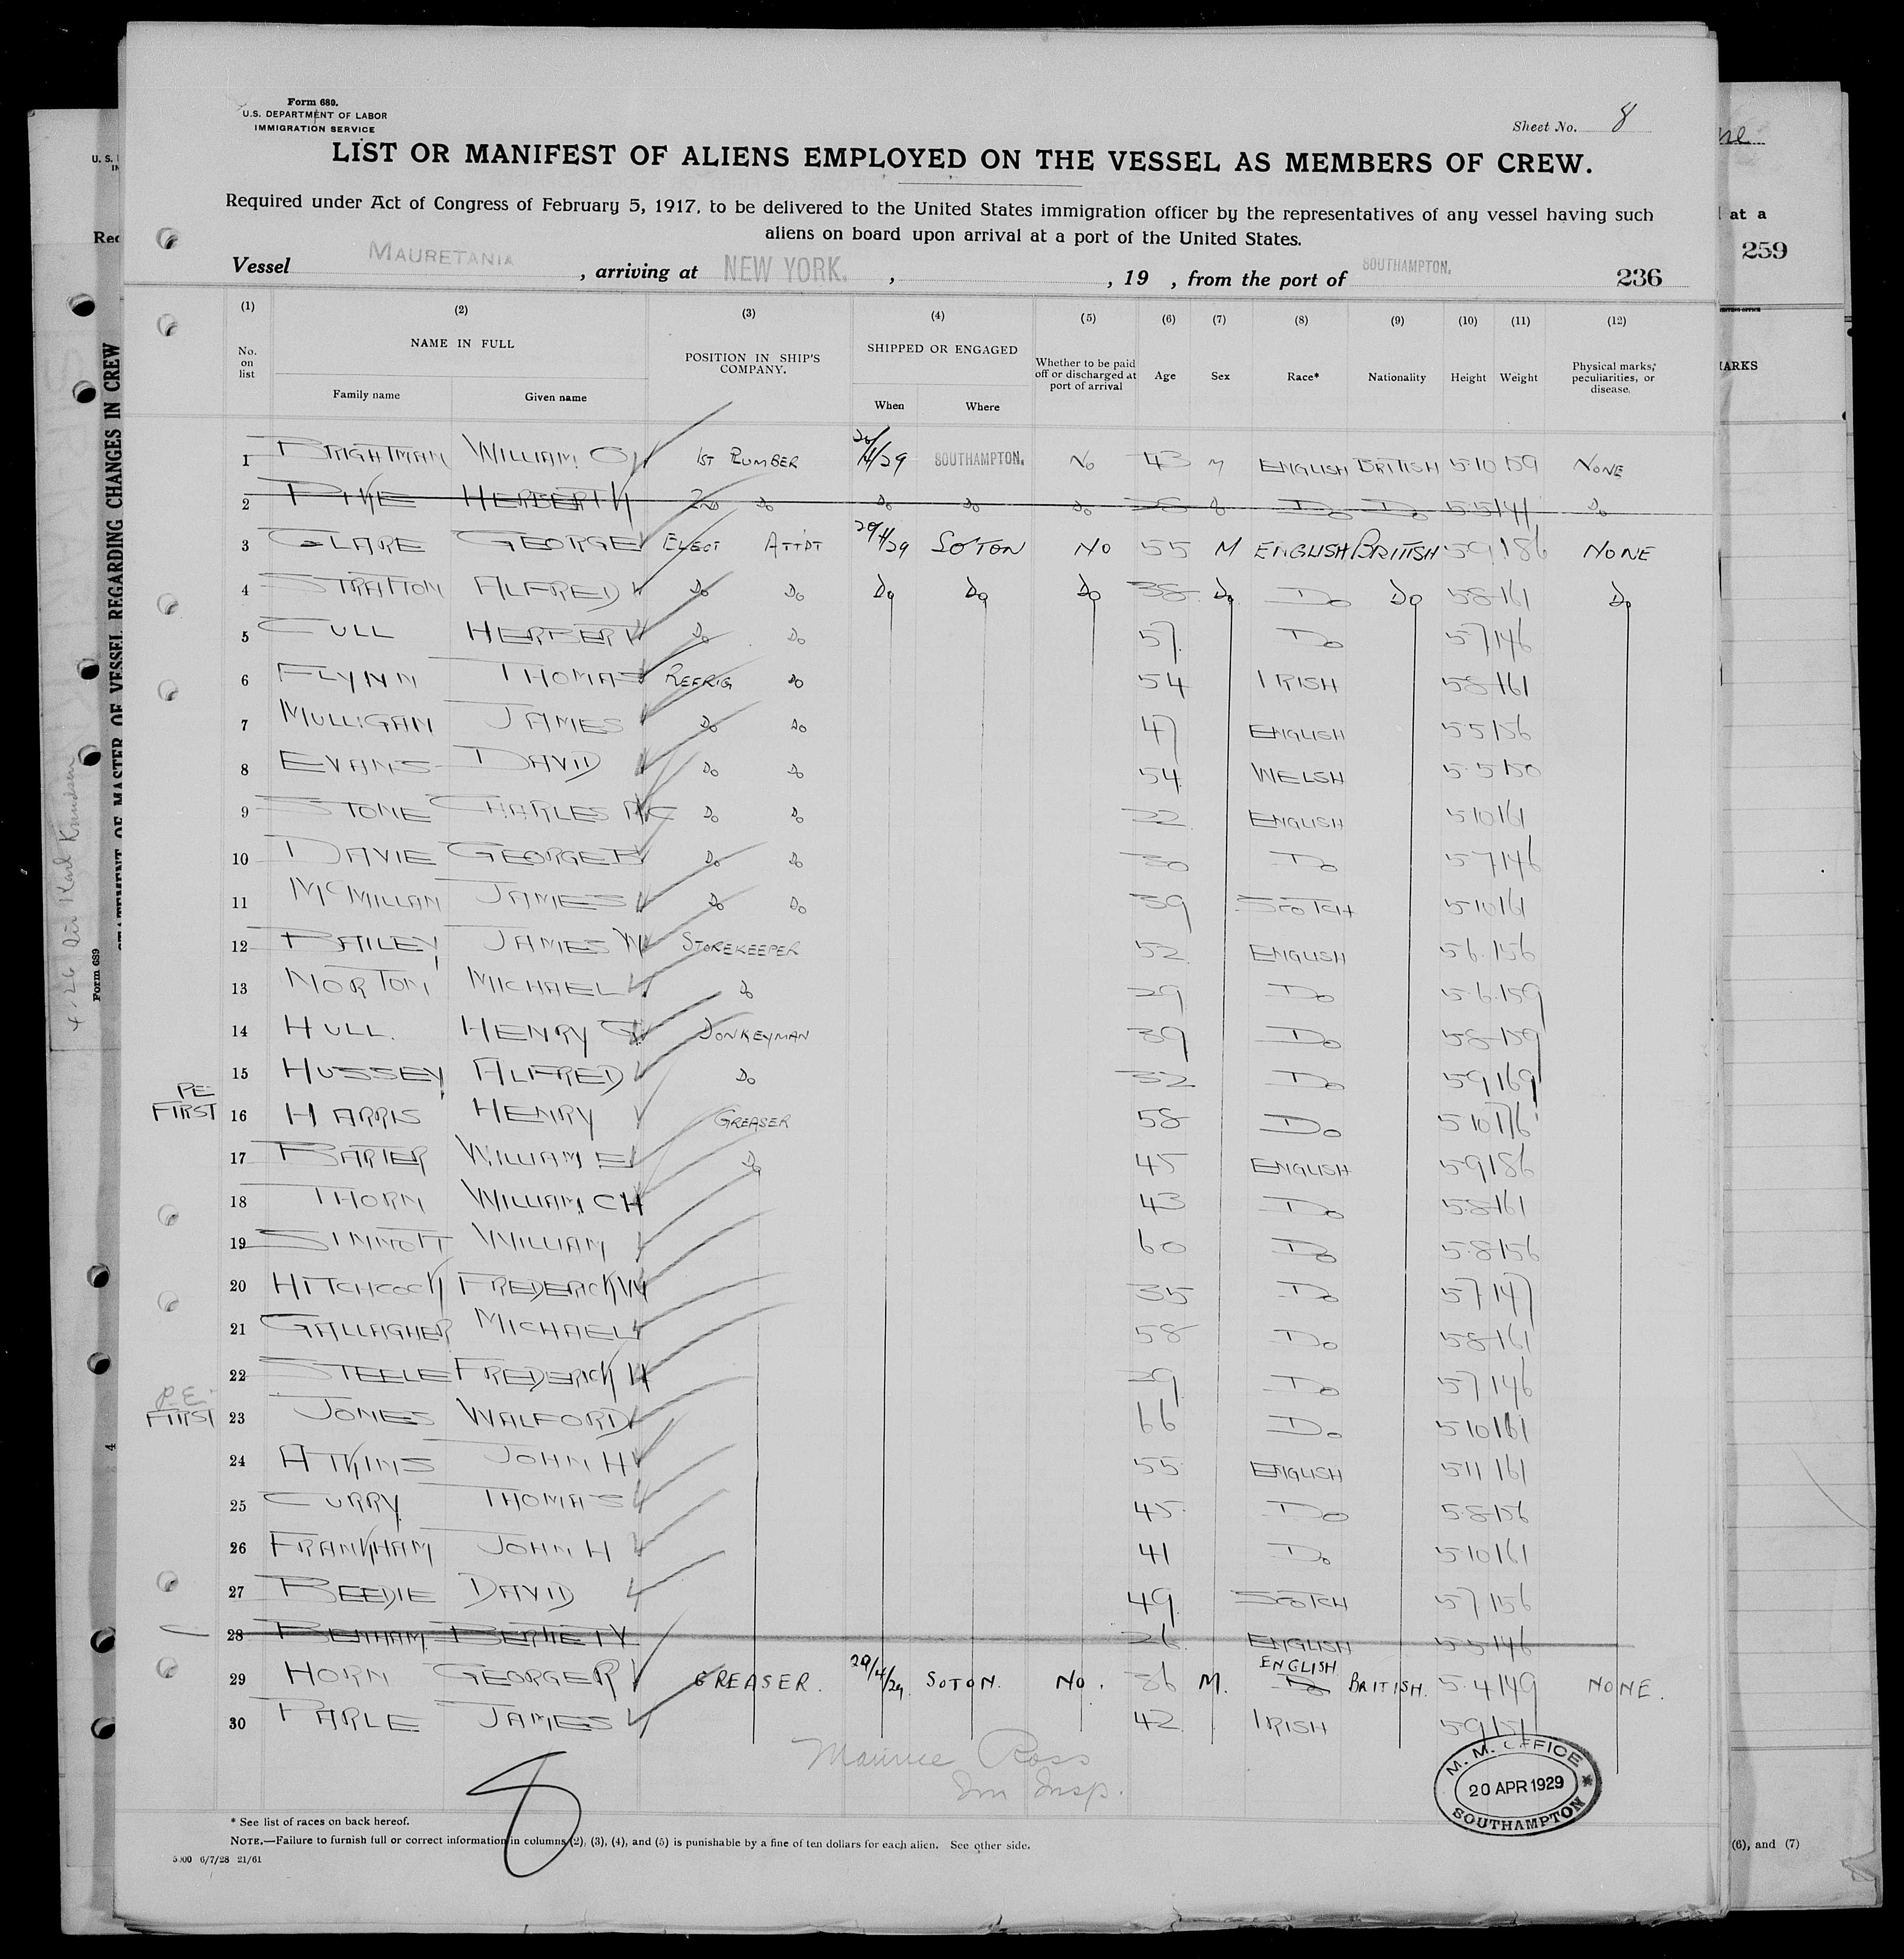 Form 680.
U.S. DEPARTMENT OF LABOR
IMMIGRATION SERVICE
Sheet No. 8
LIST OR MANIFEST OF ALIENS EMPLOYED ON THE VESSEL AS MEMBERS OF CREW.
Required under Act of Congress of February 5, 1917, to be delivered to the United States immigration officer by the representatives of any vessel having such
aliens on board upon arrival at a port of the United States.
Vessel MAURETANIA, arriving at NEW YORK. , , 19 , from the port of SOUTHAMPTON. 236
(1) (2) (3) (4) (5) (6) (7) (8) (9) (10) (11) (12)
No. on list NAME IN FULL Family name Given name POSITION IN SHIP'S COMPANY. SHIPPED OR ENGAGED When Where Whether to be paid off or discharged at port of arrival Age Sex Race* Nationality Height Weight Physical marks, peculiarities, or disease.
1 BRIGHTMAN WILLIAM O 1ST PLUMBER 20/4/29 SOUTHAMPTON. No 43 M ENGLISH BRITISH 5·10 159 NONE
2 HERBERT H 2ND Do Do Do Do Do Do 5·5 141 Do
3 CLARE GEORGE ELECT ATTDT 20/4/29 SO'TON NO 55 M ENGLISH BRITISH 5·9 186 NONE
4 STRATTON ALFRED Do Do Do Do Do 38 Do Do Do 5·8 161 Do
5 CULL HERBERT Do Do 57 Do 5·7 146
6 FLYNN THOMAS REFRIG Do 54 IRISH 5·8 161
7 MULLIGAN JAMES Do Do 47 ENGLISH 5·5 156
8 EVANS DAVID Do Do 54 WELSH 5·5 150
9 STONE CHARLES Do Do 22 ENGLISH 5·10 161
10 DAVIE GEORGE Do Do 30 Do 5·7 146
11 McMILLAN JAMES Do Do 39 SCOTCH 5·10 161
12 BAILEY JAMES W STOREKEEPER 52 ENGLISH 5·6 156
13 NORTON MICHAEL Do 29 Do 5·6 159
14 HULL. HENRY G DONKEYMAN 39 Do 5·8 159
15 HUSSEY ALFRED Do 32 Do 5·9 169
PE
FIRST 16 HARRIS HENRY GREASER 58 Do 5·10 176
17 WILLIAM E Do 45 ENGLISH 5·9 186
18 THORN WILLIAM CH 43 Do 5·8 161
19 SINNOTT WILLIAM 60 Do 5·8 156
20 HITCHCOCK FREDERICK W 35 Do 5·7 147
21 GALLAGHER MICHAEL 58 Do 5·8 161
22 STEELE FREDERICK H 29 Do 5·7 146
P.E.
FIRST 23 JONES WALFORD 66 Do 5·10 161
24 ATKINS JOHN H 55 ENGLISH 5·11 161
25 CURRY THOMAS 45 Do 5·8 156
26 FRANKHAM JOHN H 41 Do 5·10 161
27 BEEDIE DAVID 49 SCOTCH 5·7 156
28 BENHAM BERTIE 26 ENGLISH 5·5 146
29 HORN GEORGE R GREASER. 20/4/29. SOTON. No. 36 M. ENGLISH Do BRITISH. 5·4 149 NONE.
30 PARLE JAMES 42 IRISH 5·9 151
Maurice Ross
Im Insp.
M. M. OFFICE
20 APR 1929
SOUTHAMPTON
8
* See list of races on back hereof.
NOTE.—Failure to furnish full or correct information in columns (2), (3), (4), and (5) is punishable by a fine of ten dollars for each alien. See other side.
6/7/28 21/61
STATEMENT OF MASTER OF VESSEL REGARDING CHANGES IN CREW
Form 689
at a
259
(6), and (7)